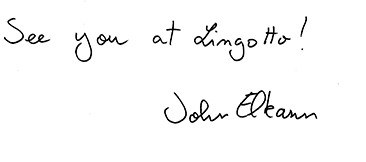 See you at Lingotto!
John Elkann